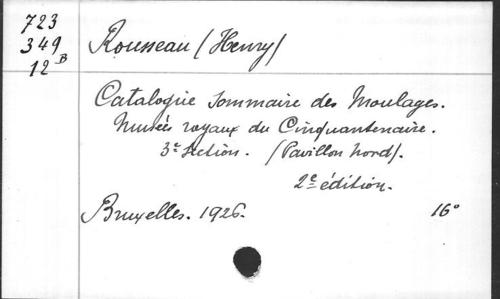 723
349
12 B
Rousseau (Henry)
Catalogue Sommaire des Moulages.
Musées royaux du Cinquantenaire.
3e Section. (Pavillon Nord).
2e édition.
Bruxelles. 1926. 16°